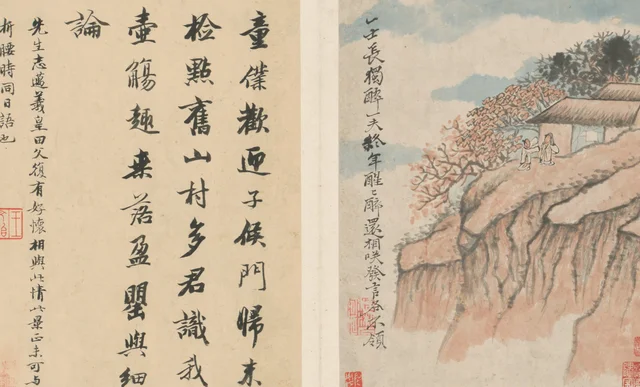 一士長獨醉一夫終年醒〻醉還相咲發言各不領
童僕歡迎子候門歸来
檢點舊山村多君識我
壺觴趣来落盈罌與細
論
先生志邁羲皇田父復有好懷相與此情此景正未可与
折腰時同日語也